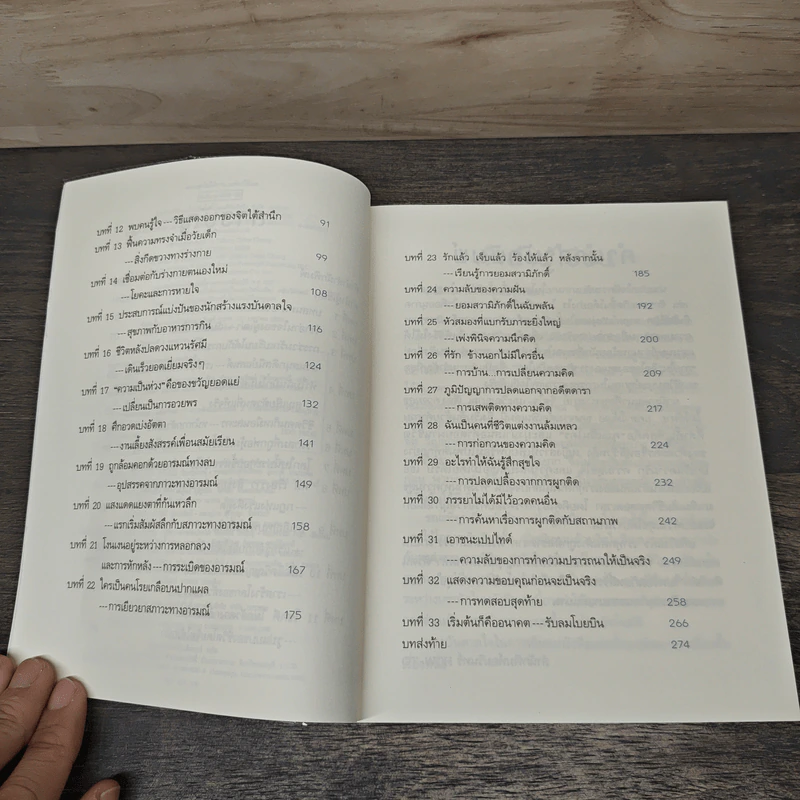 บทที่ 12 พบคนรู้ใจ --- วิธีแสดงออกของจิตใต้สำนึก 91
บทที่ 13 ฟื้นความทรงจำเมื่อวัยเด็ก
---สิ่งกีดขวางทางร่างกาย 99
บทที่ 14 เชื่อมต่อกับร่างกายตนเองใหม่
---โยคะและการหายใจ 108
บทที่ 15 ประสบการณ์แบ่งปันของนักสร้างแรงบันดาลใจ
---สุขภาพกับอาหารการกิน 116
บทที่ 16 ชีวิตหลังปลดวงแหวนรัศมี
---เดินเร็วยอดเยี่ยมจริงๆ 124
บทที่ 17 "ความเป็นห่วง" คือของขวัญยอดแย่
---เปลี่ยนเป็นการอวยพร 132
บทที่ 18 ศึกอวดเบ่งอัตตา
---งานเลี้ยงสังสรรค์เพื่อนสมัยเรียน 141
บทที่ 19 ถูกล้อมคอกด้วยอารมณ์ทางลบ
---อุปสรรคจากภาวะทางอารมณ์ 149
บทที่ 20 แสงแดดแยงตาที่ก้นเหวลึก
---แรกเริ่มสัมผัสลึกกับสภาวะทางอารมณ์ 158
บทที่ 21 โงนเงนอยู่ระหว่างการหลอกลวง
และการหักหลัง---การระเบิดของอารมณ์ 167
บทที่ 22 ใครเป็นคนโรยเกลือบนปากแผล
---การเยียวยาสภาวะทางอารมณ์ 175
บทที่ 23 รักแล้ว เจ็บแล้ว ร้องไห้แล้ว หลังจากนั้น
---เรียนรู้การยอมสวามิภักดิ์ 185
บทที่ 24 ความลับของความฝัน
---ยอมสวามิภักดิ์ในฉับพลัน 192
บทที่ 25 หัวสมองที่แบกรับภาระยิ่งใหญ่
---เพ่งพินิจความนึกคิด 200
บทที่ 26 ที่รัก ข้างนอกไม่มีใครอื่น
---การบ้าน...การเปลี่ยนความคิด 209
บทที่ 27 ภูมิปัญญาการปลดแอกจากอดีตดารา
---การเสพติดทางความคิด 217
บทที่ 28 ฉันเป็นคนที่ชีวิตแต่งงานล้มเหลว
---การก่อกวนของความคิด 224
บทที่ 29 อะไรทำให้ฉันรู้สึกสุขใจ
---การปลดเปลื้องจากการผูกติด 232
บทที่ 30 ภรรยาไม่ได้มีไว้อวดคนอื่น
---การค้นหาเรื่องการผูกติดกับสถานภาพ 242
บทที่ 31 เอาชนะเปปไทด์
---ความลับของการทำความปรารถนาให้เป็นจริง 249
บทที่ 32 แสดงความขอบคุณก่อนจะเป็นจริง
---การทดสอบสุดท้าย 258
บทที่ 33 เริ่มต้นก็คืออนาคต---รับลมโบยบิน 266
บทส่งท้าย 274